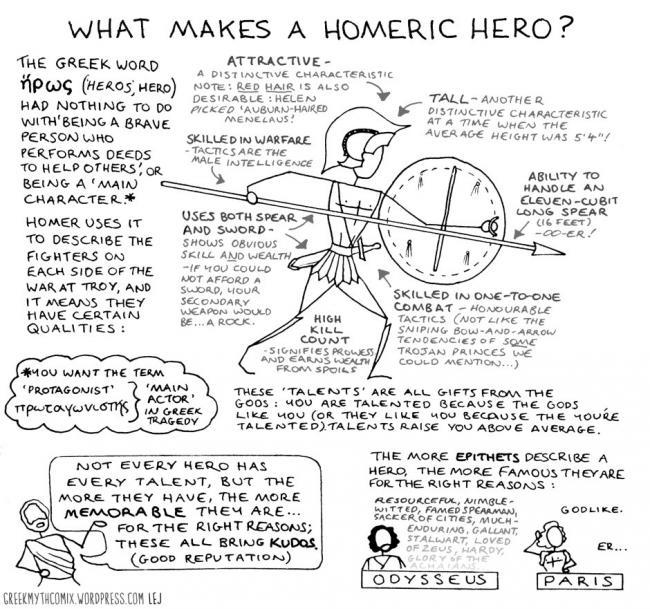 WHAT MAKES A HOMERIC HERO?
THE GREEK WORD
ἥρως (HEROS; HERO)
HAD NOTHING TO DO
WITH 'BEING A BRAVE
PERSON WHO
PERFORMS DEEDS
TO HELP OTHERS', OR
BEING A 'MAIN
CHARACTER.*
HOMER USES IT
TO DESCRIBE THE
FIGHTERS ON
EACH SIDE OF THE
WAR AT TROY, AND
IT MEANS THEY
HAVE CERTAIN
QUALITIES:
ATTRACTIVE-
A DISTINCTIVE CHARACTERISTIC
NOTE: RED HAIR IS ALSO
DESIRABLE: HELEN
PICKED 'AUBURN-HAIRED
MENELAUS!
TALL-ANOTHER
DISTINCTIVE CHARACTERISTIC
AT A TIME WHEN THE
AVERAGE HEIGHT WAS 5'4"!
SKILLED IN WARFARE
-TACTICS ARE THE
MALE INTELLIGENCE
ABILITY TO
HANDLE AN
ELEVEN-CUBIT
LONG SPEAR
(16 FEET)
-OO-ER!
USES BOTH SPEAR
AND SWORD-
SHOWS OBVIOUS
SKILL AND WEALTH
-IF YOU COULD
NOT AFFORD A
SWORD, YOUR
SECONDARY
WEAPON WOULD
BE...A ROCK.
HIGH
KILL
COUNT
-SIGNIFIES PROWESS
AND EARNS WEALTH
FROM SPOILS
SKILLED IN ONE-TO-ONE
COMBAT - HONOURABLE
TACTICS (NOT LIKE THE
SNIPING BOW-AND-ARROW
TENDENCIES OF SOME
TROJAN PRINCES WE
COULD MENTION...)
*YOU WANT THE TERM
'PROTAGONIST'
πρωταγωνιστής
'MAIN
ACTOR'
IN GREEK
TRAGEDY
THESE 'TALENTS' ARE ALL GIFTS FROM THE
GODS: YOU ARE TALENTED BECAUSE THE GODS
LIKE YOU (OR THEY LIKE YOU BECAUSE THE YOU'RE
TALENTED). TALENTS RAISE YOU ABOVE AVERAGE.
NOT EVERY HERO HAS
EVERY TALENT, BUT THE
MORE THEY HAVE, THE MORE
MEMORABLE THEY ARE...
FOR THE RIGHT REASONS;
THESE ALL BRING KUDOS.
(GOOD REPUTATION)
THE MORE EPITHETS DESCRIBE A
HERO, THE MORE FAMOUS THEY ARE
FOR THE RIGHT REASONS:
RESOURCEFUL, NIMBLE-
WITTED, FAMED SPEARMAN,
SACKER OF CITIES, MUCH-
ENDURING, GALLANT,
STALWART, LOVED
OF ZEUS, HARDY,
GLORY OF THE
ACHAIANS
ODYSSEUS
GODLIKE.
ER...
PARIS
GREEKMYTHCOMIX.WORDPRESS.COM LEJ